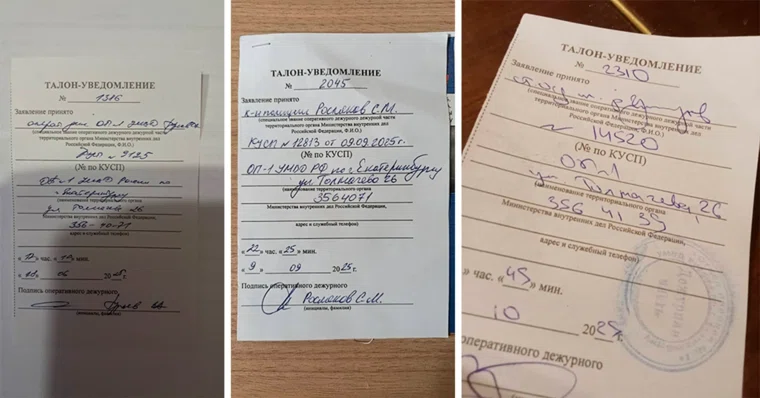 ТАЛОН-УВЕДОМЛЕНИЕ
№ 1316
Заявление принято
(специальное звание оперативного дежурного дежурной части
территориального органа Министерства внутренних дел
Российской Федерации, Ф.И.О.)
9125
(№ по КУСП)
Екатеринбургу
ул 26
(наименование территориального органа
Министерства внутренних дел Российской Федерации,
356-40-71
адрес и служебный телефон)
час. мин.
06
Подпись оперативного дежурного
(инициалы, фамилия)
ТАЛОН-УВЕДОМЛЕНИЕ
№ 2045
Заявление принято
к-н полиции Росляков С.М.
(специальное звание оперативного дежурного дежурной части
территориального органа Министерства внутренних дел
Российской Федерации, Ф.И.О.)
КУСП № 12813 от 09.09.2025г.
(№ по КУСП)
ОП-1 УМВД РФ по г. Екатеринбургу
ул Толмачева 26
(наименование территориального органа
3564071
Министерства внутренних дел Российской Федерации,
адрес и служебный телефон)
«22» час. «25» мин.
«9» 09 2025г.
Подпись оперативного дежурного
Росляков С.М.
(инициалы, фамилия)
ТАЛОН-УВЕДОМЛЕНИЕ
№ 2310
Заявление принято
(специальное звание оперативного дежурного дежурной части
территориального органа Министерства внутренних дел
Российской Федерации, Ф.И.О.)
№ 14520
(№ по КУСП)
ОП-1
ул. Толмачева, 26
(наименование территориального органа
356 41 39
Министерства внутренних дел Российской Федерации,
адрес и служебный телефон)
» час. «45» мин.
10 2025г.
оперативного дежурного